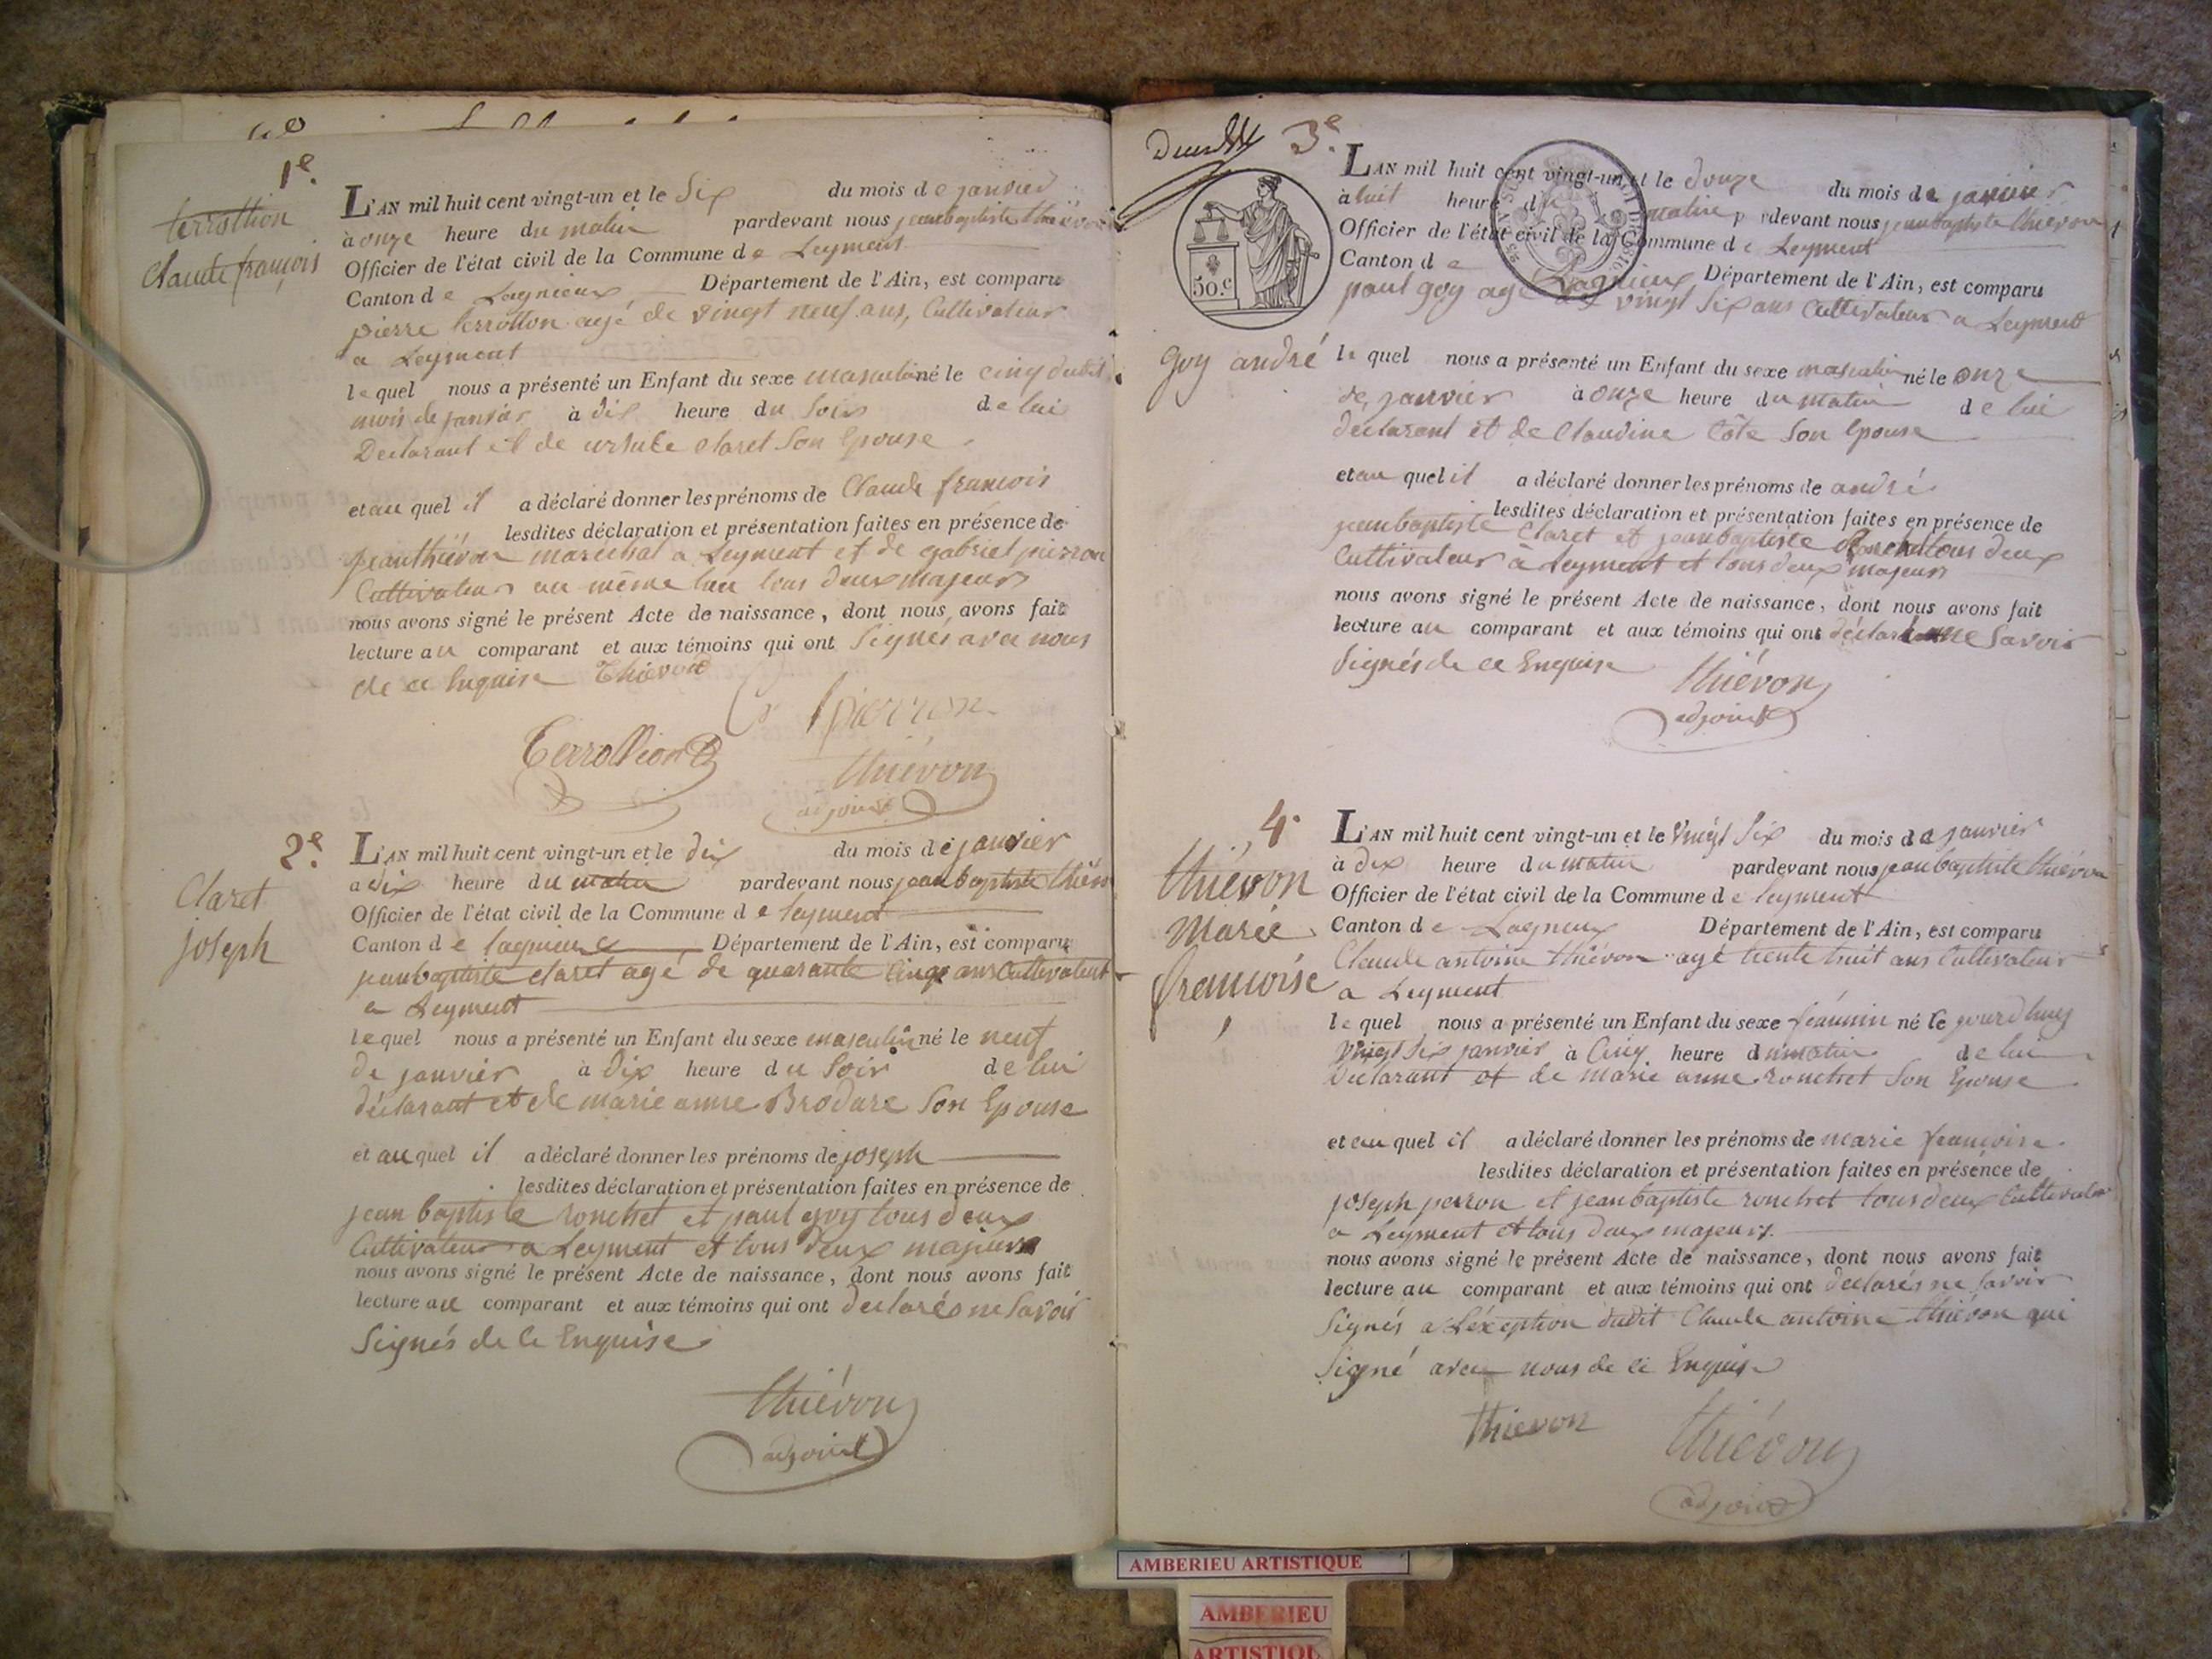 1e.
terrollion
Claude françois
L'AN mil huit cent vingt-un et le Six du mois de janvier
à onze heure du matin pardevant nous jeanbaptiste thiévon
Officier de l'état civil de la Commune de Leyment
Canton de Lagnieux Département de l'Ain, est comparu
pierre terrollion agé de vingt neuf ans, Cultivateur
a Leyment
lequel nous a présenté un Enfant du sexe masculin né le cinq dudit
mois de janvier à dix heure du Soir de lui
Declarant et de ursule claret Son Epouse
et au quel il a déclaré donner les prénoms de Claude françois
lesdites déclaration et présentation faites en présence de
jean thiévon maréchal a Leyment et de gabriel pierron
Cultivateur au même lieu tous deux majeurs
nous avons signé le présent Acte de naissance, dont nous avons fait
lecture au comparant et aux témoins qui ont Signés avec nous
de ce Enquise Thiévon
pierron
Terollion
thiévon
adjoint
2e.
Claret
joseph
L'AN mil huit cent vingt-un et le dix du mois de janvier
a dix heure du matin pardevant nous jeanbaptiste thiévon
Officier de l'état civil de la Commune de leyment
Canton de lagnieux Département de l'Ain, est comparu
jeanbaptiste claret agé de quarante cinq ans Cultivateur
a Leyment
lequel nous a présenté un Enfant du sexe masculin né le neuf
de janvier à Dix heure du Soir de lui
déclarant et de marie anne Brodure Son Epouse
et au quel il a déclaré donner les prénoms de joseph
lesdites déclaration et présentation faites en présence de
jean baptiste ronchet et paul goy tous deux
Cultivateur a Leyment et tous deux majeurs
nous avons signé le présent Acte de naissance, dont nous avons fait
lecture au comparant et aux témoins qui ont declarés ne Savoir
Signés de ce Enquise
thiévon
adjoint
3e.
50.c
goy andré
L'AN mil huit cent vingt-un et le douze du mois de janvier
à huit heure du matin pardevant nous jeanbaptiste thiévon
Officier de l'état civil de la Commune de Leyment
Canton de Lagnieux Département de l'Ain, est comparu
paul goy agé de vingt Six ans Cultivateur a Leyment
lequel nous a présenté un Enfant du sexe masculin né le onze
de janvier à onze heure du matin de lui
declarant et de Claudine Côte Son Epouse
et au quel il a déclaré donner les prénoms de andré
lesdites déclaration et présentation faites en présence de
jeanbaptiste Claret et jeanbaptiste Ronchet tous deux
Cultivateur à Leyment et tous deux majeurs
nous avons signé le présent Acte de naissance, dont nous avons fait
lecture au comparant et aux témoins qui ont déclaré ne Savoir
Signés de ce Enquise
thiévon
adjoint
4e
thiévon
Marie
françoise
L'AN mil huit cent vingt-un et le Vingt Six du mois de janvier
à dix heure du matin pardevant nous jeanbaptiste thiévon
Officier de l'état civil de la Commune de leyment
Canton de Lagnieux Département de l'Ain, est comparu
Claude antoine thiévon agé trente huit ans Cultivateur
a Leyment
lequel nous a présenté un Enfant du sexe féminin né le jourdhuy
vingt Six janvier à Cinq heure du matin de lui
Declarant et de marie anne ronchet Son Epouse
et au quel il a déclaré donner les prénoms de marie françoise
lesdites déclaration et présentation faites en présence de
joseph perron et jeanbaptiste ronchet tous deux Cultivateur
a Leyment et tous deux majeurs.
nous avons signé le présent Acte de naissance, dont nous avons fait
lecture au comparant et aux témoins qui ont declarés ne Savoir
Signés a L'éxeption dudit Claude antoine thiévon qui
Signé avec nous de ce Enquise
thievon
thiévon
adjoint
AMBERIEU ARTISTIQUE
AMBERIEU
ARTISTIQU